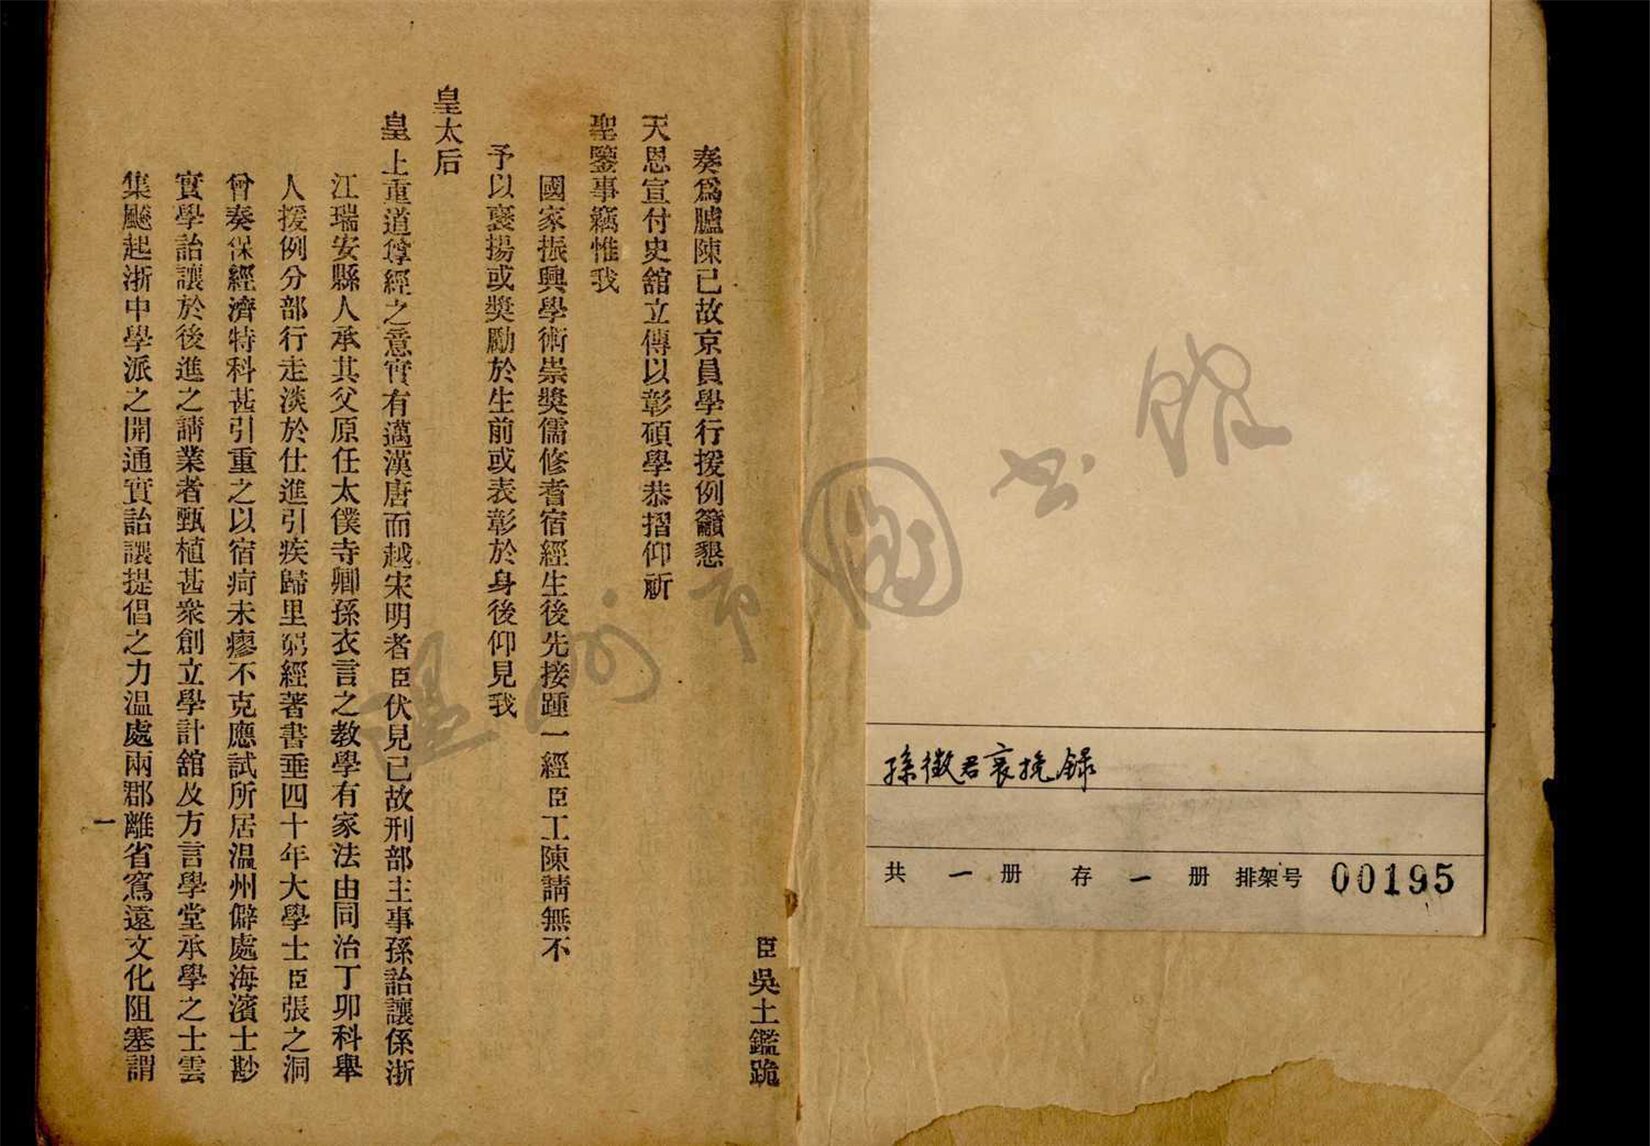 孫徵君哀挽録
共一册 存一册 排架号 00195
温州市圖书館
臣吳士鑑跪
奏爲臚陳已故京員學行援例籲懇
天恩宣付史舘立傳以彰碩學恭摺仰祈
聖鑒事竊惟我
國家振興學術崇獎儒修耆宿經生後先接踵一經臣工陳請無不
予以襃揚或獎勵於生前或表彰於身後仰見我
皇太后
皇上重道尊經之意實有邁漢唐而越宋明者臣伏見已故刑部主事孫詒讓係浙
江瑞安縣人承其父原任太僕寺卿孫衣言之教學有家法由同治丁卯科舉
人援例分部行走淡於仕進引疾歸里窮經著書垂四十年大學士臣張之洞
曾奏保經濟特科甚引重之以宿疴未瘳不克應試所居温州僻處海濱士尠
實學詒讓於後進之請業者甄植甚衆創立學計舘及方言學堂承學之士雲
集飇起浙中學派之開通實詒讓提倡之力温處兩郡離省窵遠文化阻塞謂
一